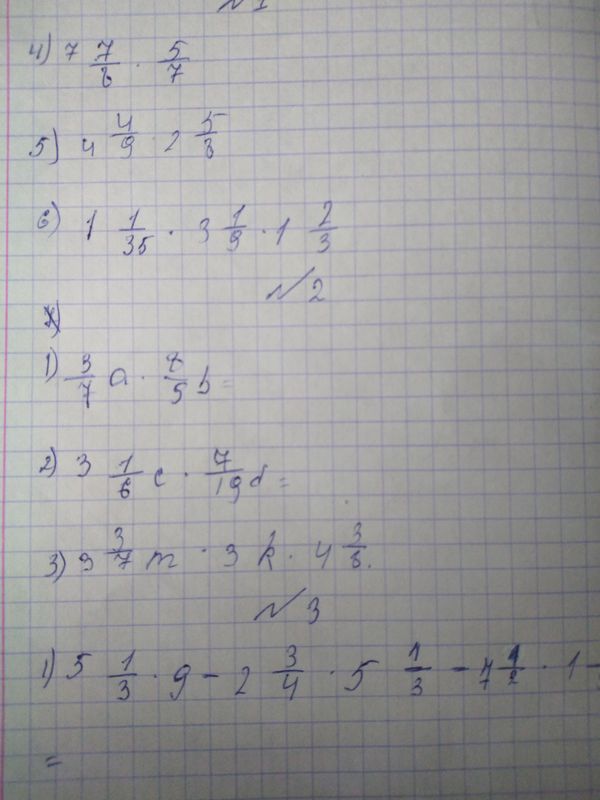 №1
4) 7 7/8 · 5/7
5) 4 4/9 · 2 5/8
6) 1 1/35 · 3 1/9 · 1 2/3
№2
1) 3/7 a · 8/5 b =
2) 3 1/6 c · 7/19 d =
3) 9 3/7 m · 3 k · 4 3/8.
№3
1) 5 1/3 · 9 - 2 3/4 · 5 1/3 - 4 1/2 · 1
=